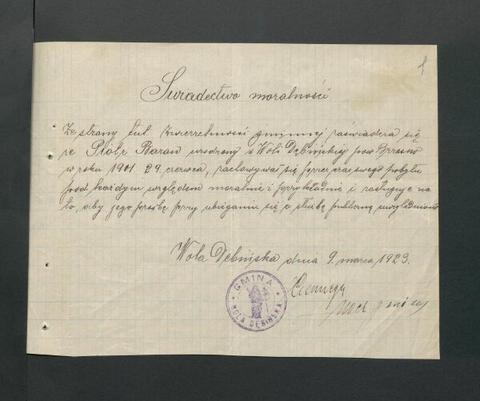 1
Świadectwo moralności
Ze strony tut. Zwierzchności gminnej zaświadcza się
że Piotr Baran urodzony w Woli Dębińskiej pow. Brzesko
w roku 1901 29. czerwca, zachowywał się przez czas swego pobytu
pod każdym względem moralnie i przykładnie i zasługuje na
to, aby jego prośbę przy ubieganiu się o służbę publiczną uwzględniono
Wola Dębińska dnia 9. marca 1923.
GMINA
WOLA DĘBIŃSKA